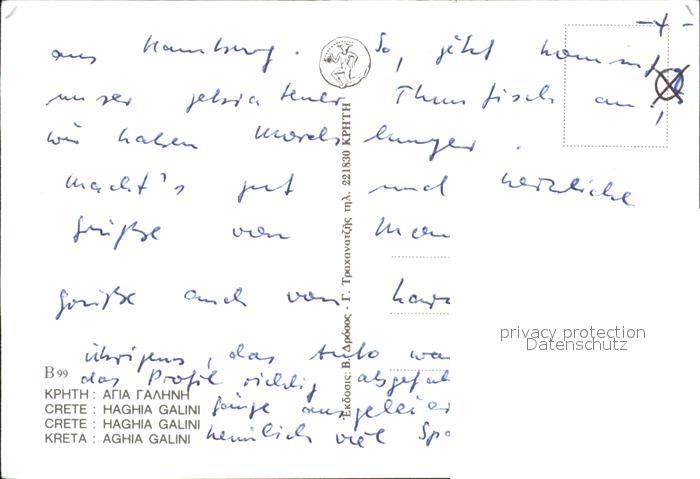 - 4 -
aus Hamburg. So, jetzt kommt
unser gebratener Thunfisch an,
wir haben Mords hunger.
Macht's gut und herzliche
Grüße von
Grüße auch von
übrigens, das Auto
das Profil richtig
viel
B 99
ΚΡΗΤΗ : ΑΓΙΑ ΓΑΛΗΝΗ
CRETE : HAGHIA GALINI
CRETE : HAGHIA GALINI
KRETA : AGHIA GALINI
Εκδοσις: Β. Δρόσος - Γ. Τραχανατζής τηλ. 221830 ΚΡΗΤΗ
privacy protection
Datenschutz